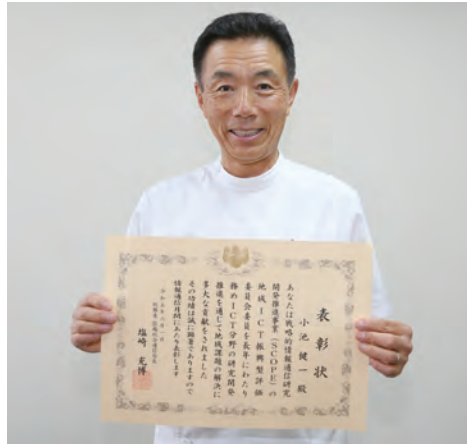 表彰状
小池健一殿
あなたは戦略的情報通信研究
開発推進事業（ＳＣＯＰＥ）の
地域ＩＣＴ振興型評価
委員会委員を長年にわたり
務めＩＣＴ分野の研究開発
推進を通じて地域課題の解決に
多大な貢献をされました
その功績は誠に顕著でありますので
情報通信月間にあたり表彰します
塩崎充博